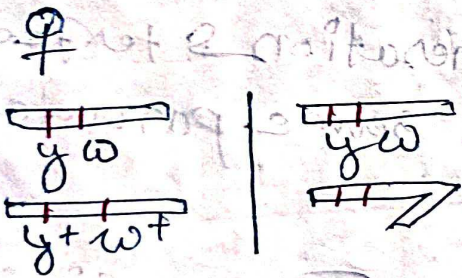 ♀
y w y w
y+ w+